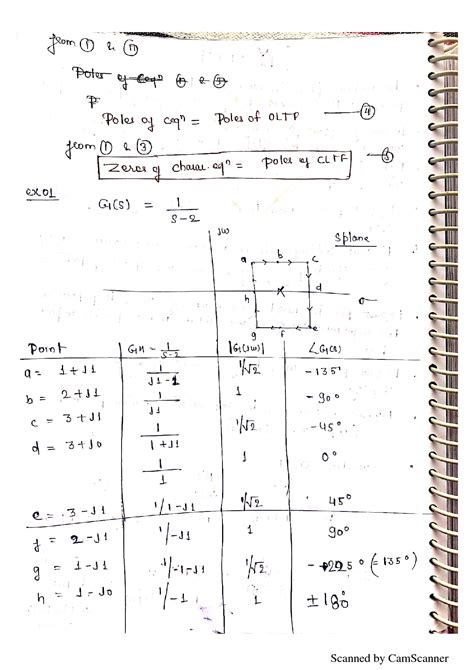 from ① & ②
Poles of ceqⁿ = Poles of OLTF — ④
from ① & ③
Zeros of charac. eqⁿ = Poles of CLTF — ⑤
ex01
G(s) = 1/(s-2)
jω
s plane
a b c
h d σ
g f e
Point | 1/(s-2) | |G(jω)| | ∠G(s)
a = 1+J1 | 1/(J1-1) | 1/√2 | -135°
b = 2+J1 | 1/J1 | 1 | -90°
c = 3+J1 | 1/(1+J1) | 1/√2 | -45°
d = 3+J0 | 1/1 | 1 | 0°
e = 3-J1 | 1/1-J1 | 1/√2 | 45°
f = 2-J1 | 1/-J1 | 1 | 90°
g = 1-J1 | 1/-1-J1 | 1/√2 | -225° (=135°)
h = 1-J0 | 1/-1 | 1 | ±180°
Scanned by CamScanner